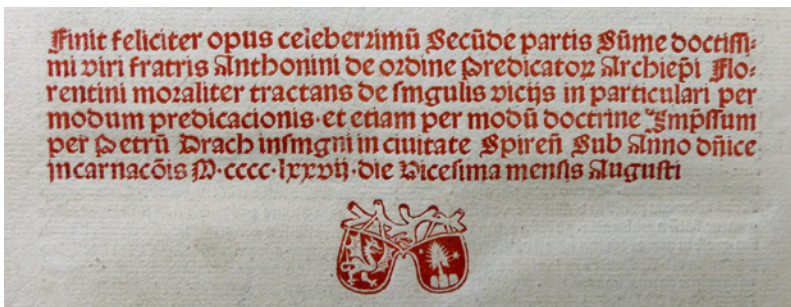 Finit feliciter opus celeberrimū Secūde partis Sūme doctissi⸗
mi viri fratris Anthonini de ordine Predicatoꝝ Archiep̄i Flo⸗
rentini moraliter tractans de singulis vicijs in particulari per
modum predicacionis·et etiam per modū doctrine Imp̄ssum
per Petrū Drach insigni in ciuitate Spireñ Sub Anno dñice
incarnacōis M·cccc·lxxvij·die Vicesima mensis Augusti